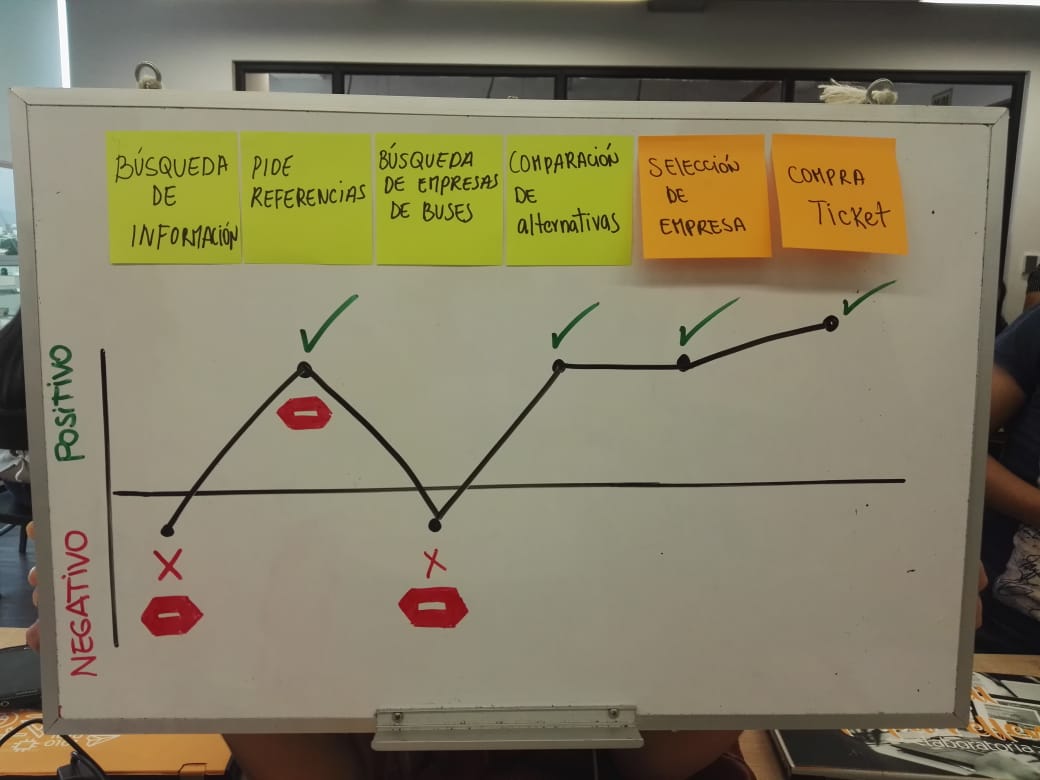 BÚSQUEDA
DE
INFORMACIÓN
PIDE
REFERENCIAS
BÚSQUEDA
DE EMPRESAS
DE BUSES
COMPARACIÓN
DE
alternativas
SELECCIÓN
DE
EMPRESA
COMPRA
Ticket
POSITIVO
NEGATIVO
elaboratoria